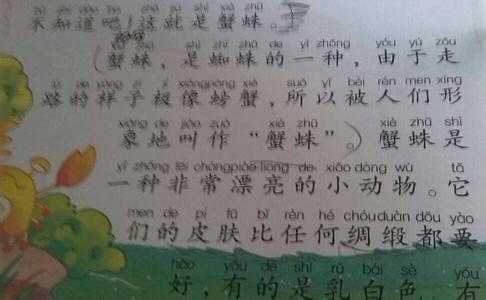 zhī dào ba zhè jiù shì xiè zhū
不知道吧！这就是蟹蛛。
zhū shì zhī zhū de yī zhǒng yóu yú zǒu
（蟹蛛，是蜘蛛的一种，由于走
lù de yàng zi jí xiàng páng xiè suǒ yǐ bèi rén men xíng
路的样子极像螃蟹，所以被人们形
xiàng de jiào zuò xiè zhū xiè zhū shì
象地叫作“蟹蛛”。）蟹蛛是
yī zhǒng fēi cháng piào liang de xiǎo dòng wù tā
一种非常漂亮的小动物。它
men de pí fū bǐ rèn hé chóu duàn dōu yào
们的皮肤比任何绸缎都要
hǎo yǒu de shì rǔ bái sè yǒu
好，有的是乳白色，有